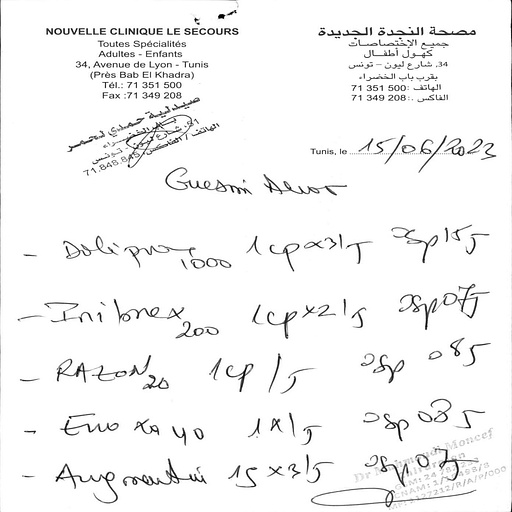 NOUVELLE CLINIQUE LE SECOURS
Toutes Spécialités
Adultes - Enfants
34, Avenue de Lyon - Tunis
(Près Bab El Khadra)
Tél.: 71 351 500
Fax :71 349 208
مصحة النجدة الجديدة
جميع الإختصاصات
كهول أطفال
34، شارع ليون - تونس
بقرب باب الخضراء
الهاتف :500 351 71
الفاكس :208 349 71
صيدلية حمدي لحمر
باب الخضراء
شارع ليون - تونس
71.848.845
Tunis, le 15/06/2023
Guesmi
- Doliprane 1000 1cp x3/J qsp 15J
- Inibrex 200 1cp x2/J qsp 07J
- RAZON 20 1cp /J qsp 08J
- Enoxa 40 1x/J qsp 08J
- Augmentin 1g x3/J qsp 07J
Dr Mahmoudi Moncef